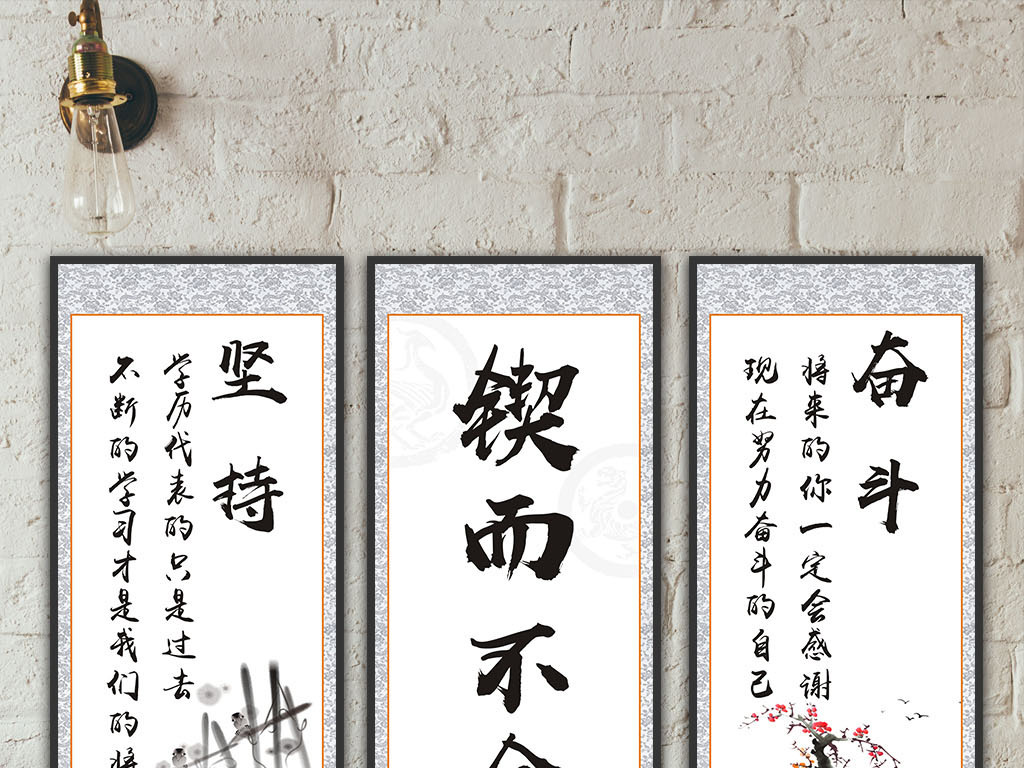 坚持
学历代表的只是过去
不断的学习才是我们的将
锲而不
奋斗
将来的你一定会感谢
现在努力奋斗的自己